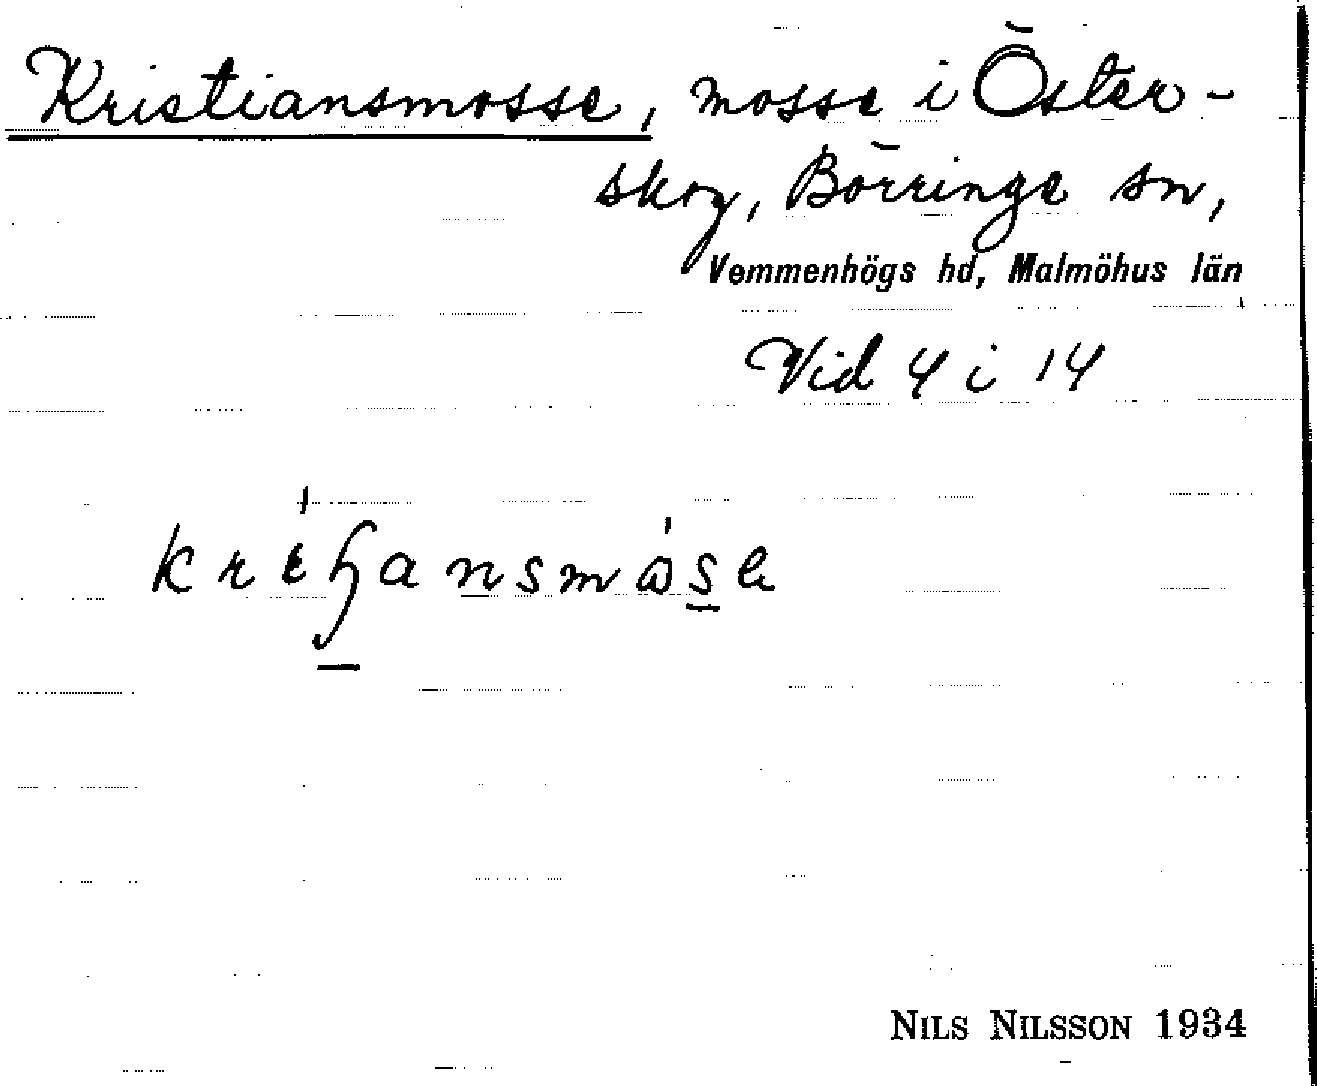 Kristiansmosse, mosse i Öster-
skog, Börringe sn,
Vemmenhögs hd, Malmöhus län
Vid 4 i 14
NILS NILSSON 1934